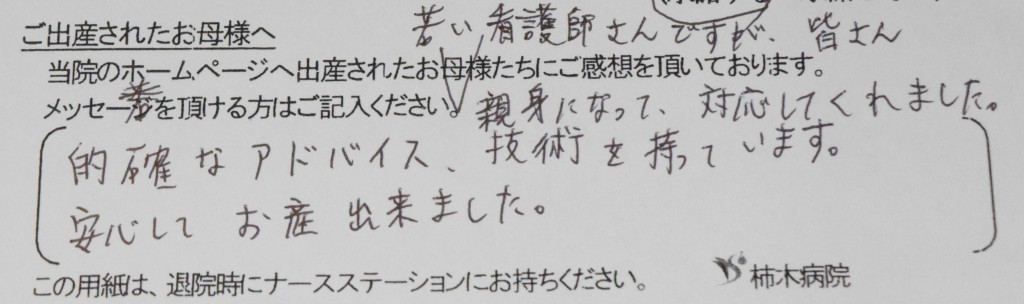 ご出産されたお母様へ
若い看護師さんですが、皆さん
当院のホームページへ出産されたお母様たちにご感想を頂いております。
メッセージを頂ける方はご記入ください。
親身になって、対応してくれました。
的確なアドバイス、技術を持っています。
安心して お産 出来ました。
この用紙は、退院時にナースステーションにお持ちください。 柿木病院